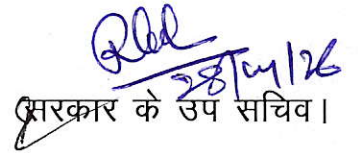 28/04/26
सरकार के उप सचिव।